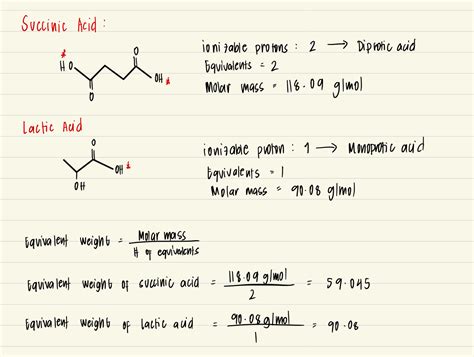 Succinic Acid :
* HO O OH *
O
ionizable protons : 2 → Diprotic acid
Equivalents = 2
Molar mass = 118.09 g/mol
Lactic Acid
O
OH *
OH
ionizable proton : 1 → Monoprotic acid
Equivalents = 1
Molar mass = 90.08 g/mol
Equivalent weight = Molar mass / # of equivalents
Equivalent weight of succinic acid = 118.09 g/mol / 2 = 59.045
Equivalent weight of lactic acid = 90.08 g/mol / 1 = 90.08